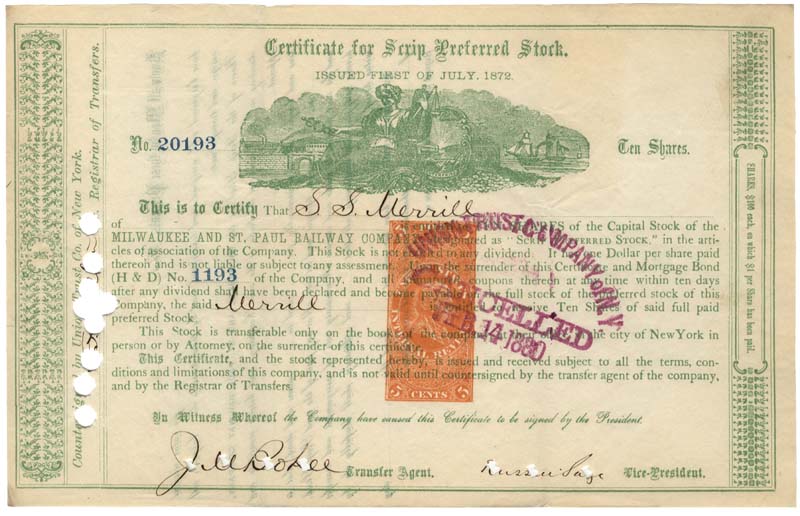 Certificate for Scrip Preferred Stock.
ISSUED FIRST OF JULY, 1872.
No. 20193
Ten Shares.
This is to Certify That S. S. Merrill
of
SHARES of the Capital Stock of the
MILWAUKEE AND ST. PAUL RAILWAY COMPANY designated as "SCRIP PREFERRED STOCK," in the arti-
cles of association of the Company. This Stock is not entitled to any dividend. It has One Dollar per share paid
thereon and is not liable or subject to any assessment. the surrender of this Certificate and Mortgage Bond
(H & D) No. 1193 of the Company, and all upon thereon at any time within ten days
after any dividend shall have been declared and become payable on the full stock of the preferred stock of this
Company, the said Merrill Ten Shares of said full paid
preferred Stock.
This Stock is transferable only on the books of the company at their office in the city of New York in
person or by Attorney, on the surrender of this certificate.
This Certificate, and the stock represented hereby, is issued and received subject to all the terms, con-
ditions and limitations of this company, and is not valid until countersigned by the transfer agent of the company,
and by the Registrar of Transfers.
In Witness Whereof the Company have caused this Certificate to be signed by the President.
Transfer Agent.
Russell Sage Vice-President.
Union Trust Co. of New York.
Registrar of Transfers.
SHARES $100 each, on which $1 per Share has been paid.
UNION TRUST COMPANY OF N.Y.
CANCELLED
FEB 14 1880
5 CENTS 5